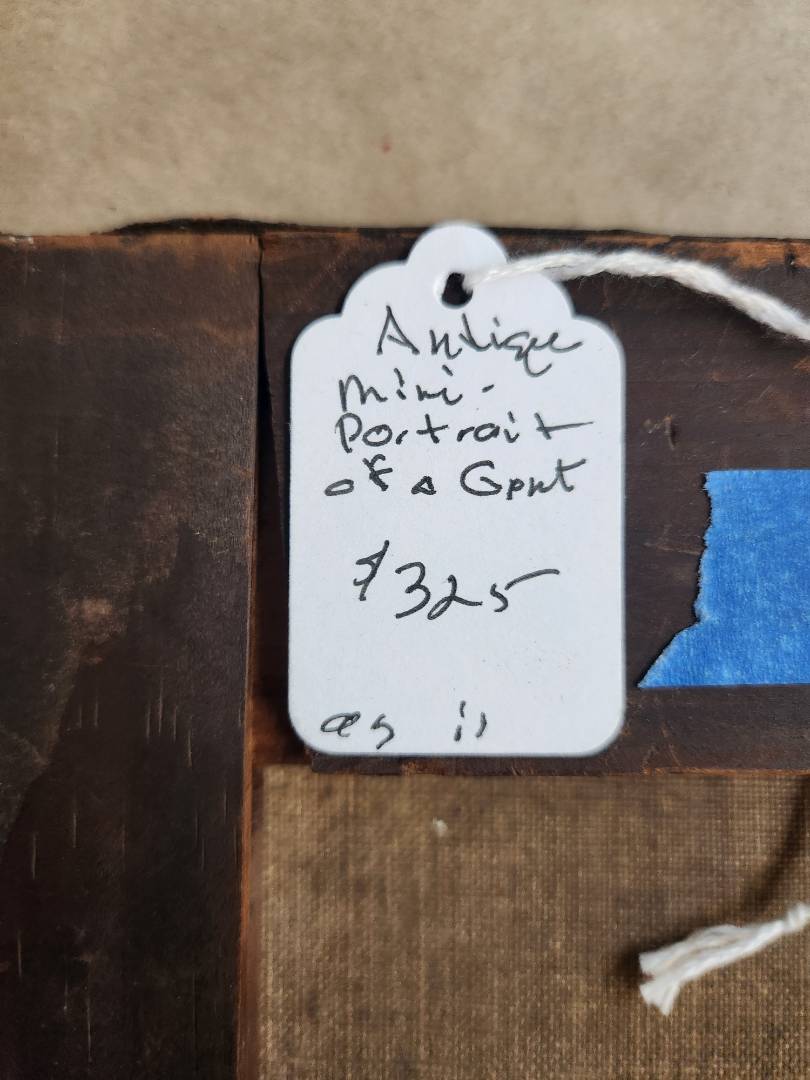 Antique
mini-
Portrait
of a Gent
$325
as is